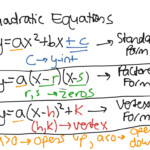 Quadratic Equations
y=ax²+bx+c → Standard Form
C → y-int
y=a(x-r)(x-s) → Factored Form
r,s → zeros
y=a(x-h)²+K → Vertex Form
(h,K) → vertex
a>0 → opens up, a<0 → opens down